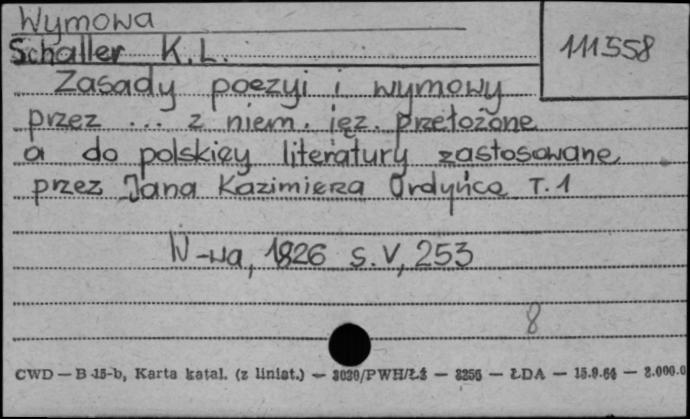 Wymowa
Schaller K.L.
111558
Zasady poezyi i wymowy
przez ... z niem. jęz. przełożone
a do polskiey literatury zastosowane
przez Jana Kazimierza Ordyńca T.1
W-wa, 1826 s. V, 253
8
CWD — B 15-b, Karta katal. (z liniat.) — 3030/PWH/Łż — 3255 — ŁDA — 15.9.64 — 2.000.0